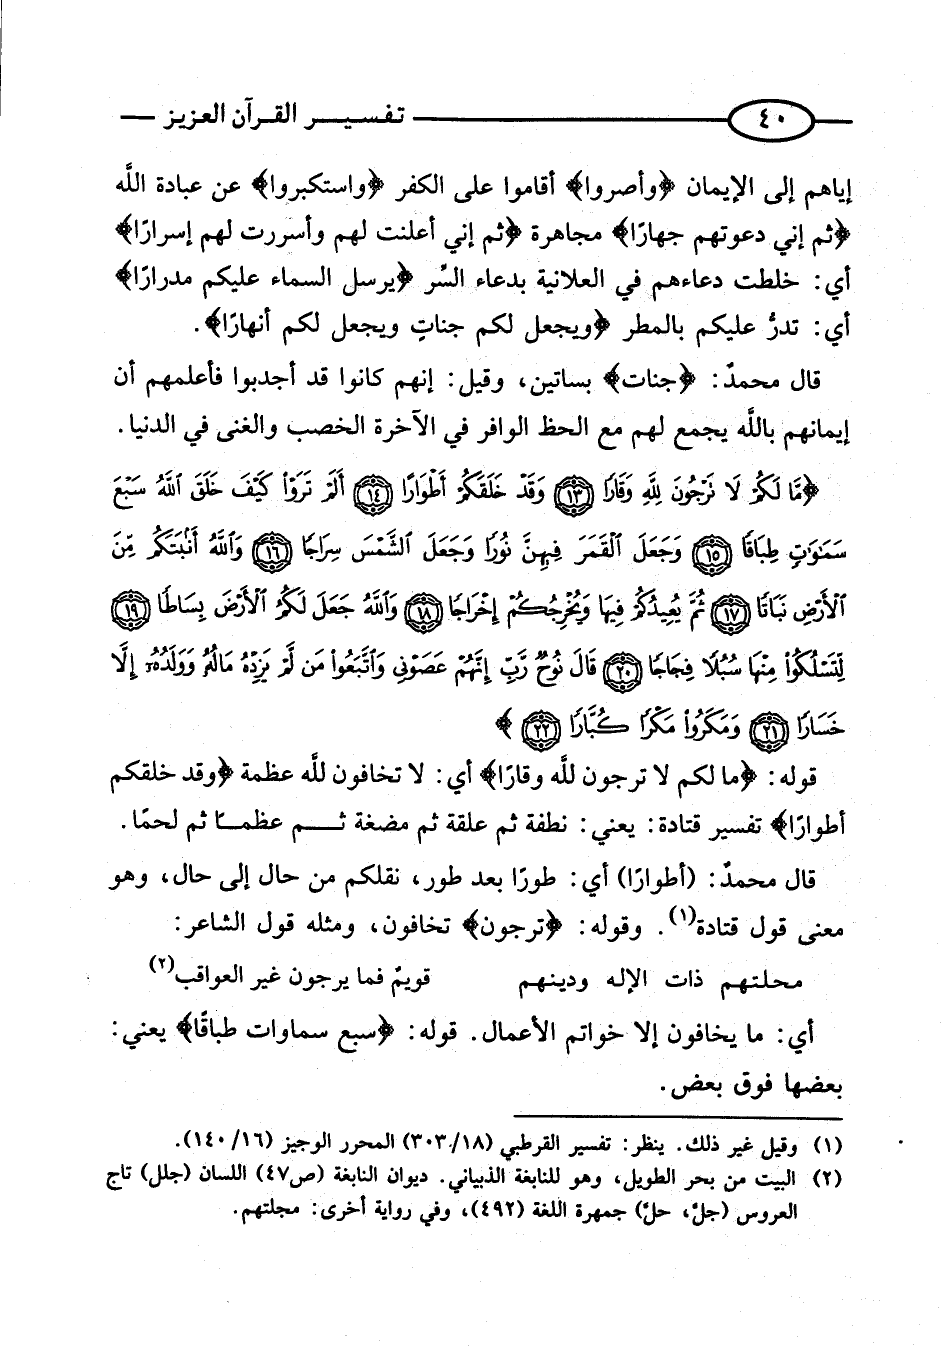 ٤٠ تفسير القرآن العزيز
إياهم إلى الإيمان ﴿وأصروا﴾ أقاموا على الكفر ﴿واستكبروا﴾ عن عبادة اللَّه
﴿ثم إني دعوتهم جهارًا﴾ مجاهرة ﴿ثم إني أعلنت لهم وأسررت لهم إسرارًا﴾
أي: خلطت دعاءهم في العلانية بدعاء السِّر ﴿يرسل السماء عليكم مدرارًا﴾
أي: تدرُّ عليكم بالمطر ﴿ويجعل لكم جناتٍ ويجعل لكم أنهارًا﴾.
قال محمدٌ: ﴿جنات﴾ بساتين، وقيل: إنهم كانوا قد أجدبوا فأعلمهم أن
إيمانهم باللَّه يجمع لهم مع الحظ الوافر في الآخرة الخصب والغنى في الدنيا.
﴿مَّا لَكُمْ لَا نَرْجُونَ لِلَّهِ وَقَارًا ١٣ وَقَدْ خَلَقَكُمْ أَطْوَارًا ١٤ أَلَمْ تَرَوْا۟ كَيْفَ خَلَقَ ٱللَّهُ سَبْعَ
سَمَٰوَٰتٍ طِبَاقًا ١٥ وَجَعَلَ ٱلْقَمَرَ فِيهِنَّ نُورًا وَجَعَلَ ٱلشَّمْسَ سِرَاجًا ١٦ وَٱللَّهُ أَنۢبَتَكُم مِّنَ
ٱلْأَرْضِ نَبَاتًا ١٧ ثُمَّ يُعِيدُكُمْ فِيهَا وَيُخْرِجُكُمْ إِخْرَاجًا ١٨ وَٱللَّهُ جَعَلَ لَكُمُ ٱلْأَرْضَ بِسَاطًا ١٩
لِّتَسْلُكُوا۟ مِنْهَا سُبُلًا فِجَاجًا ٢٠ قَالَ نُوحٌ رَّبِّ إِنَّهُمْ عَصَوْنِى وَٱتَّبَعُوا۟ مَن لَّمْ يَزِدْهُ مَالُهُۥ وَوَلَدُهُۥٓ إِلَّا
خَسَارًا ٢١ وَمَكَرُوا۟ مَكْرًا كُبَّارًا ٢٢﴾
قوله: ﴿ما لكم لا ترجون للَّه وقارًا﴾ أي: لا تخافون للَّه عظمة ﴿وقد خلقكم
أطوارًا﴾ تفسير قتادة: يعني: نطفة ثم علقة ثم مضغة ثـــم عظمـــًا ثم لحمًا.
قال محمدٌ: (أطوارًا) أي: طورًا بعد طور، نقلكم من حال إلى حال، وهو
معنى قول قتادة(١). وقوله: ﴿ترجون﴾ تخافون، ومثله قول الشاعر:
محلتهم ذات الإله ودينهم قويمٌ فما يرجون غير العواقب(٢)
أي: ما يخافون إلا خواتم الأعمال. قوله: ﴿سبع سماوات طباقًا﴾ يعني:
بعضها فوق بعض.
(١) وقيل غير ذلك. ينظر: تفسير القرطبي (١٨/ ٣٠٣) المحرر الوجيز (١٦/ ١٤٠).
(٢) البيت من بحر الطويل، وهو للنابغة الذبياني. ديوان النابغة (ص٤٧) اللسان (جلل) تاج
العروس (جلّ، حلّ) جمهرة اللغة (٤٩٢)، وفي رواية أخرى: مجلتهم.